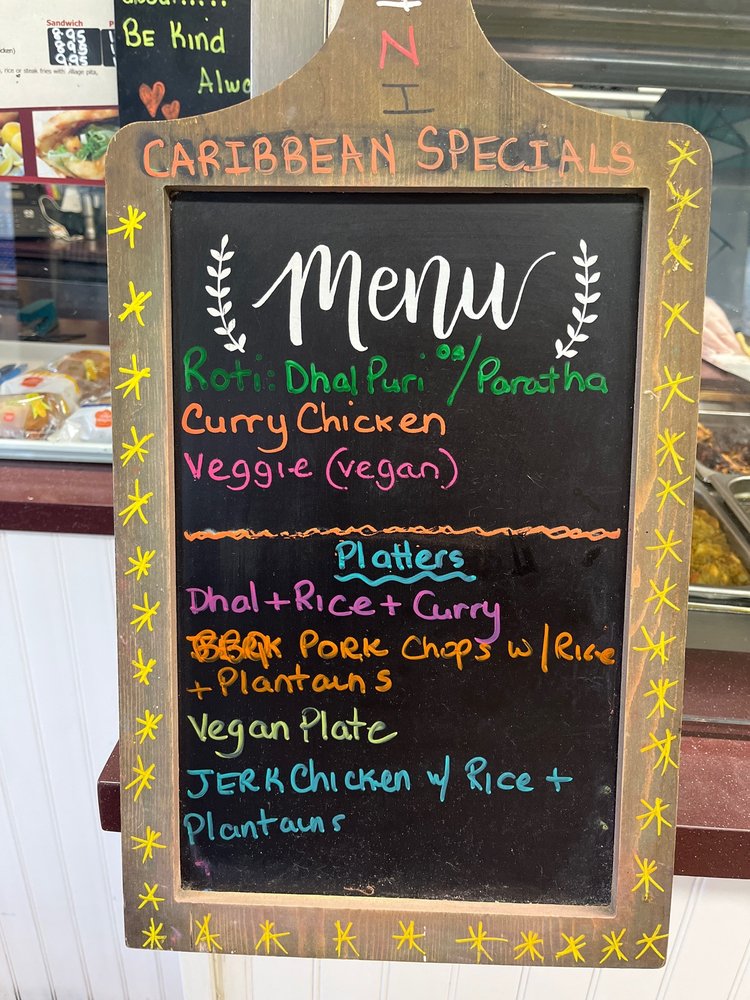 Sandwich
Be Kind
Alwa
N
I
CARIBBEAN SPECIALS
Menu
Roti: Dhal Puri or / Paratha
Curry Chicken
Veggie (vegan)
Platters
Dhal + Rice + Curry
BBQ Pork Chops w/ Rice
+ Plantains
Vegan Plate
JERK Chicken w/ Rice +
Plantains